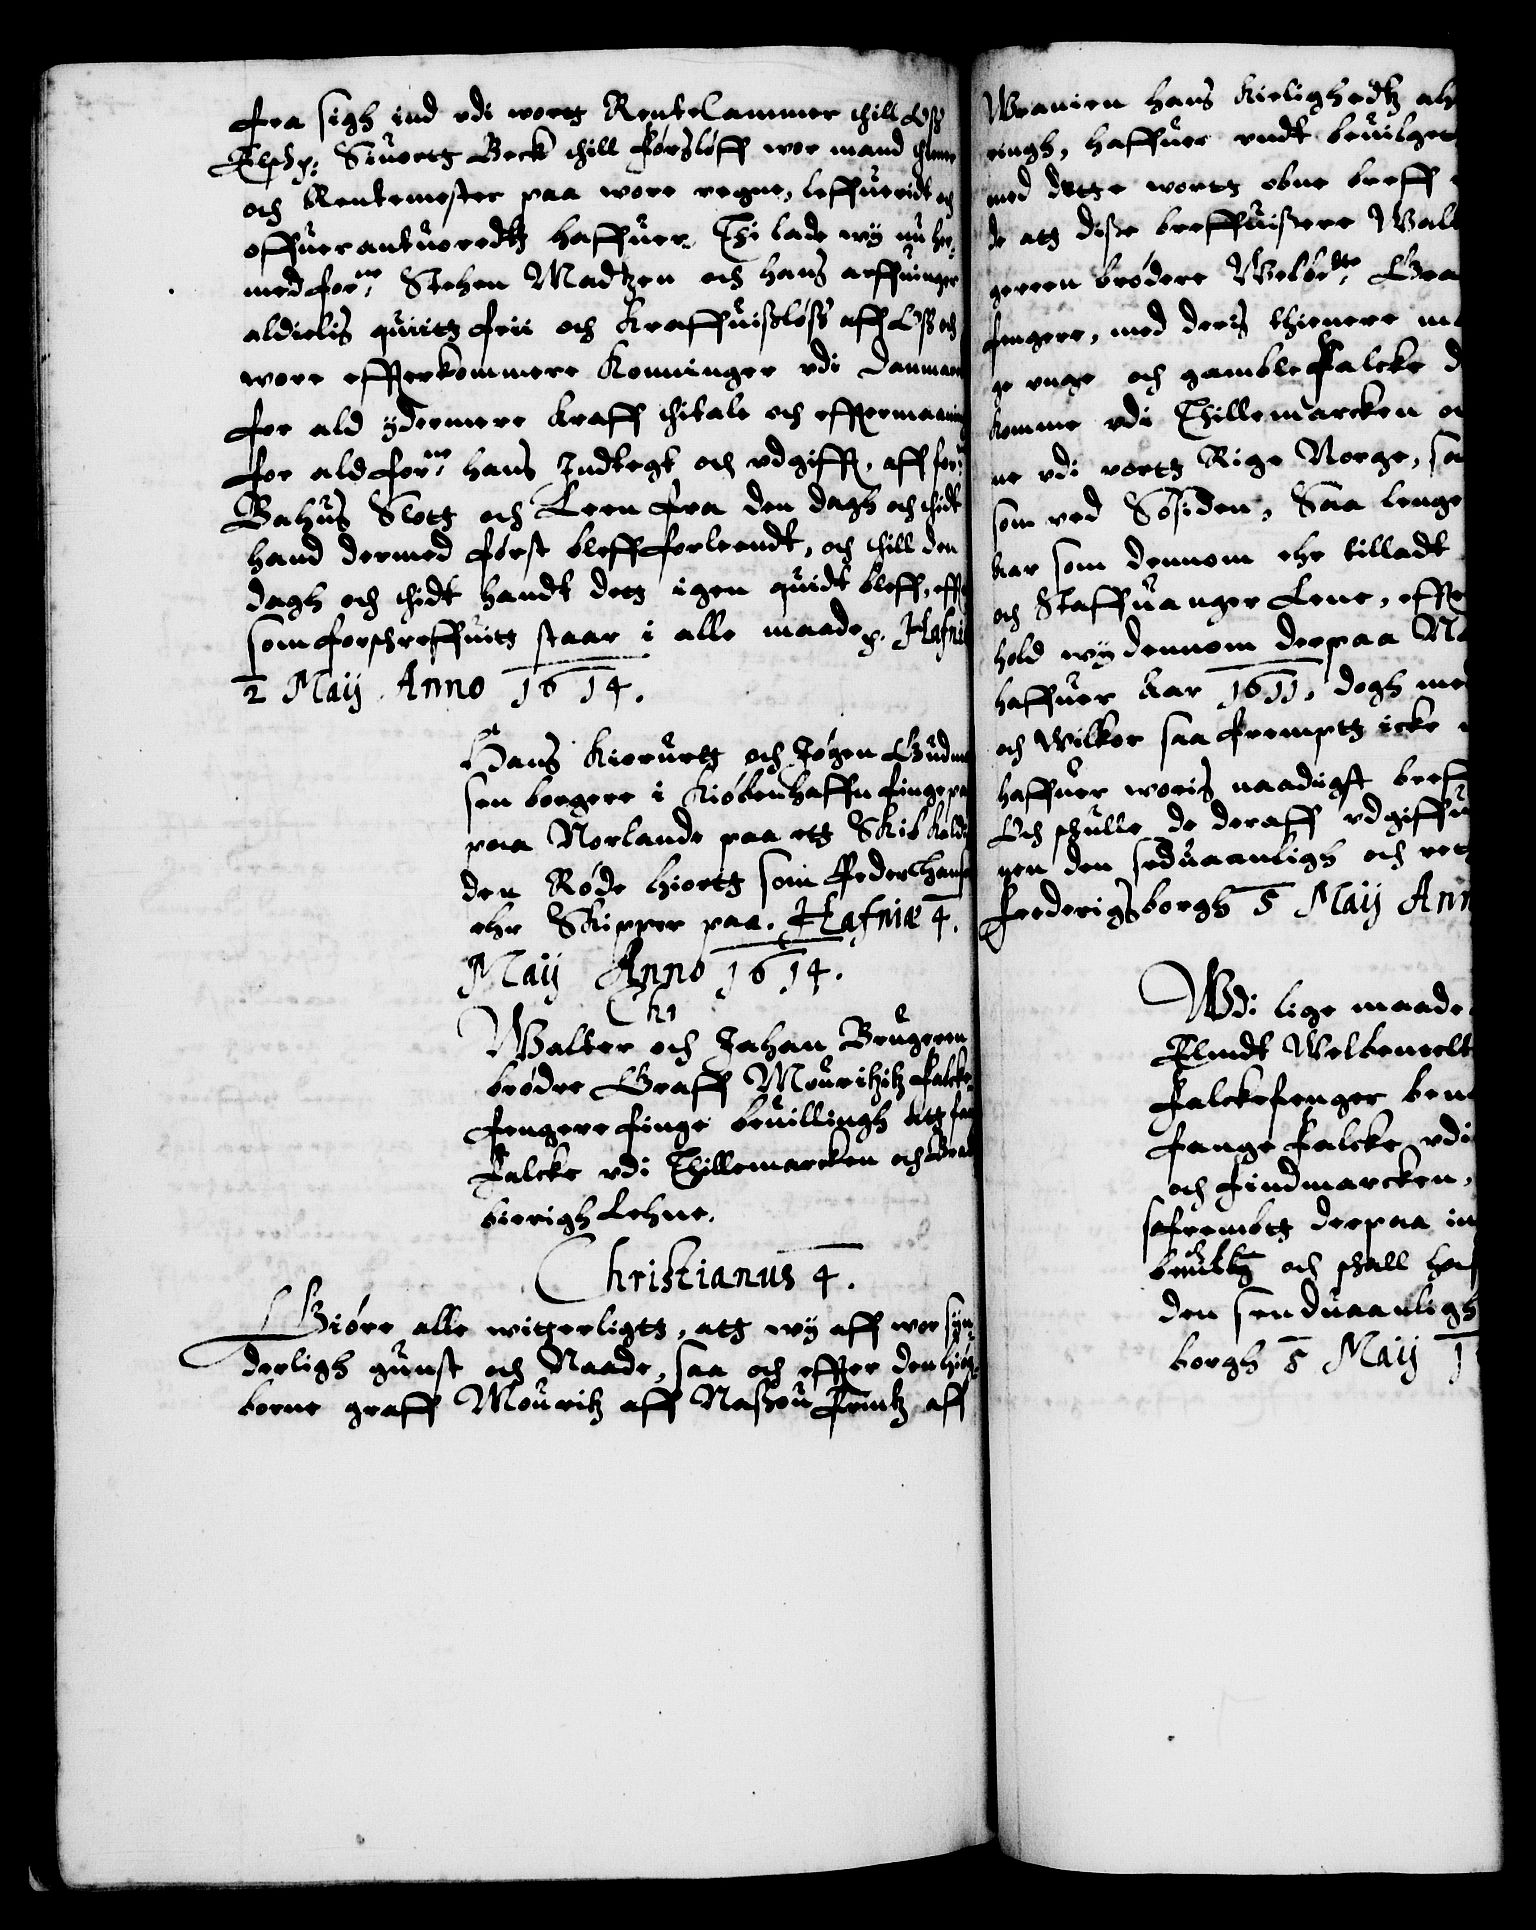 fra sigh ind vdi wortz RenteCammer thill Oss
Elsch: Siuertz Beck thill Førsløff wor mand thiener
och Rentemester paa wore vegne, leffueridt och
offuerantuoredtz haffuer. Thi lade wy nu her
med for:ne Stehen Madtzen och hans arffuinger
aldielis quiitz frii och Kraffuisløss aff Oss och
wore effterkommere Konninger vdi Danmarck
for ald ydermere Kraff thitale och effttermaaning
for ald for:ne hans Indtegt och vdgifft, aff for:ne
Bahus Slotz och Leen fra den dagh och thidt
hand dermed først bleff forleendt, och thill den
dagh och thidt handt detz igen quidt bleff, efft
som forschreffuitz staar i alle maade. Hafni
2 Maij Anno 1614.
Hans Kierurtz och Jøgen Gudm
sen borgere i Kiøbenhaffn finge pas
paa Norlande paa etz Skib Kaldis
den Røde hiortz som Peder Hans
ehr Skipper paa. Hafniæ 4.
Maij Anno 1614.
Walter och Johan Brugeren
brødre Graff Mouritzitz falcke
fengere finge beuillingh att fan
falcke vdi Thillemarcken och Brat
bierigh Lehne.
Christianus 4.
Giøre alle witterligtz, att wy aff wor syn
derligh gunst och Naade, saa och effter den høig
borne graff Mouritz aff Nassou Printz aff
Wranien hans Kierlighedtz ah
ringh, haffuer vndt beuilget
med dette wortz obne breff
de att disse breffuissere Walt
geren brødere Welbør:dte Gra
fengere, med deris thienere m
ge unge och gamble Falcke d
komme vdi Thillemarcken oc
ne vdi vortz Rige Norge, sa
som ved Søsiden, Saa lenge
Aar som dennom ehr tilladt
och Staffuanger Lene, effte
hold wy dennom derpaa Na
haffuer Aar 1611, dogh me
och Wilkor saa frempt icke
haffuer woris naadigst breff
Och schulle de deraff vdgiffu
gen den seduaanligh och rett
Frederigsborgh 5 Maij Ann
Wdi lige maade
Elindt Welbeneelt
falckefenger ben
fange falcke vdi
och findmarcken,
saframbt derpaa in
och schall ha
den seeduaanligh
borgh 5 Maij 1